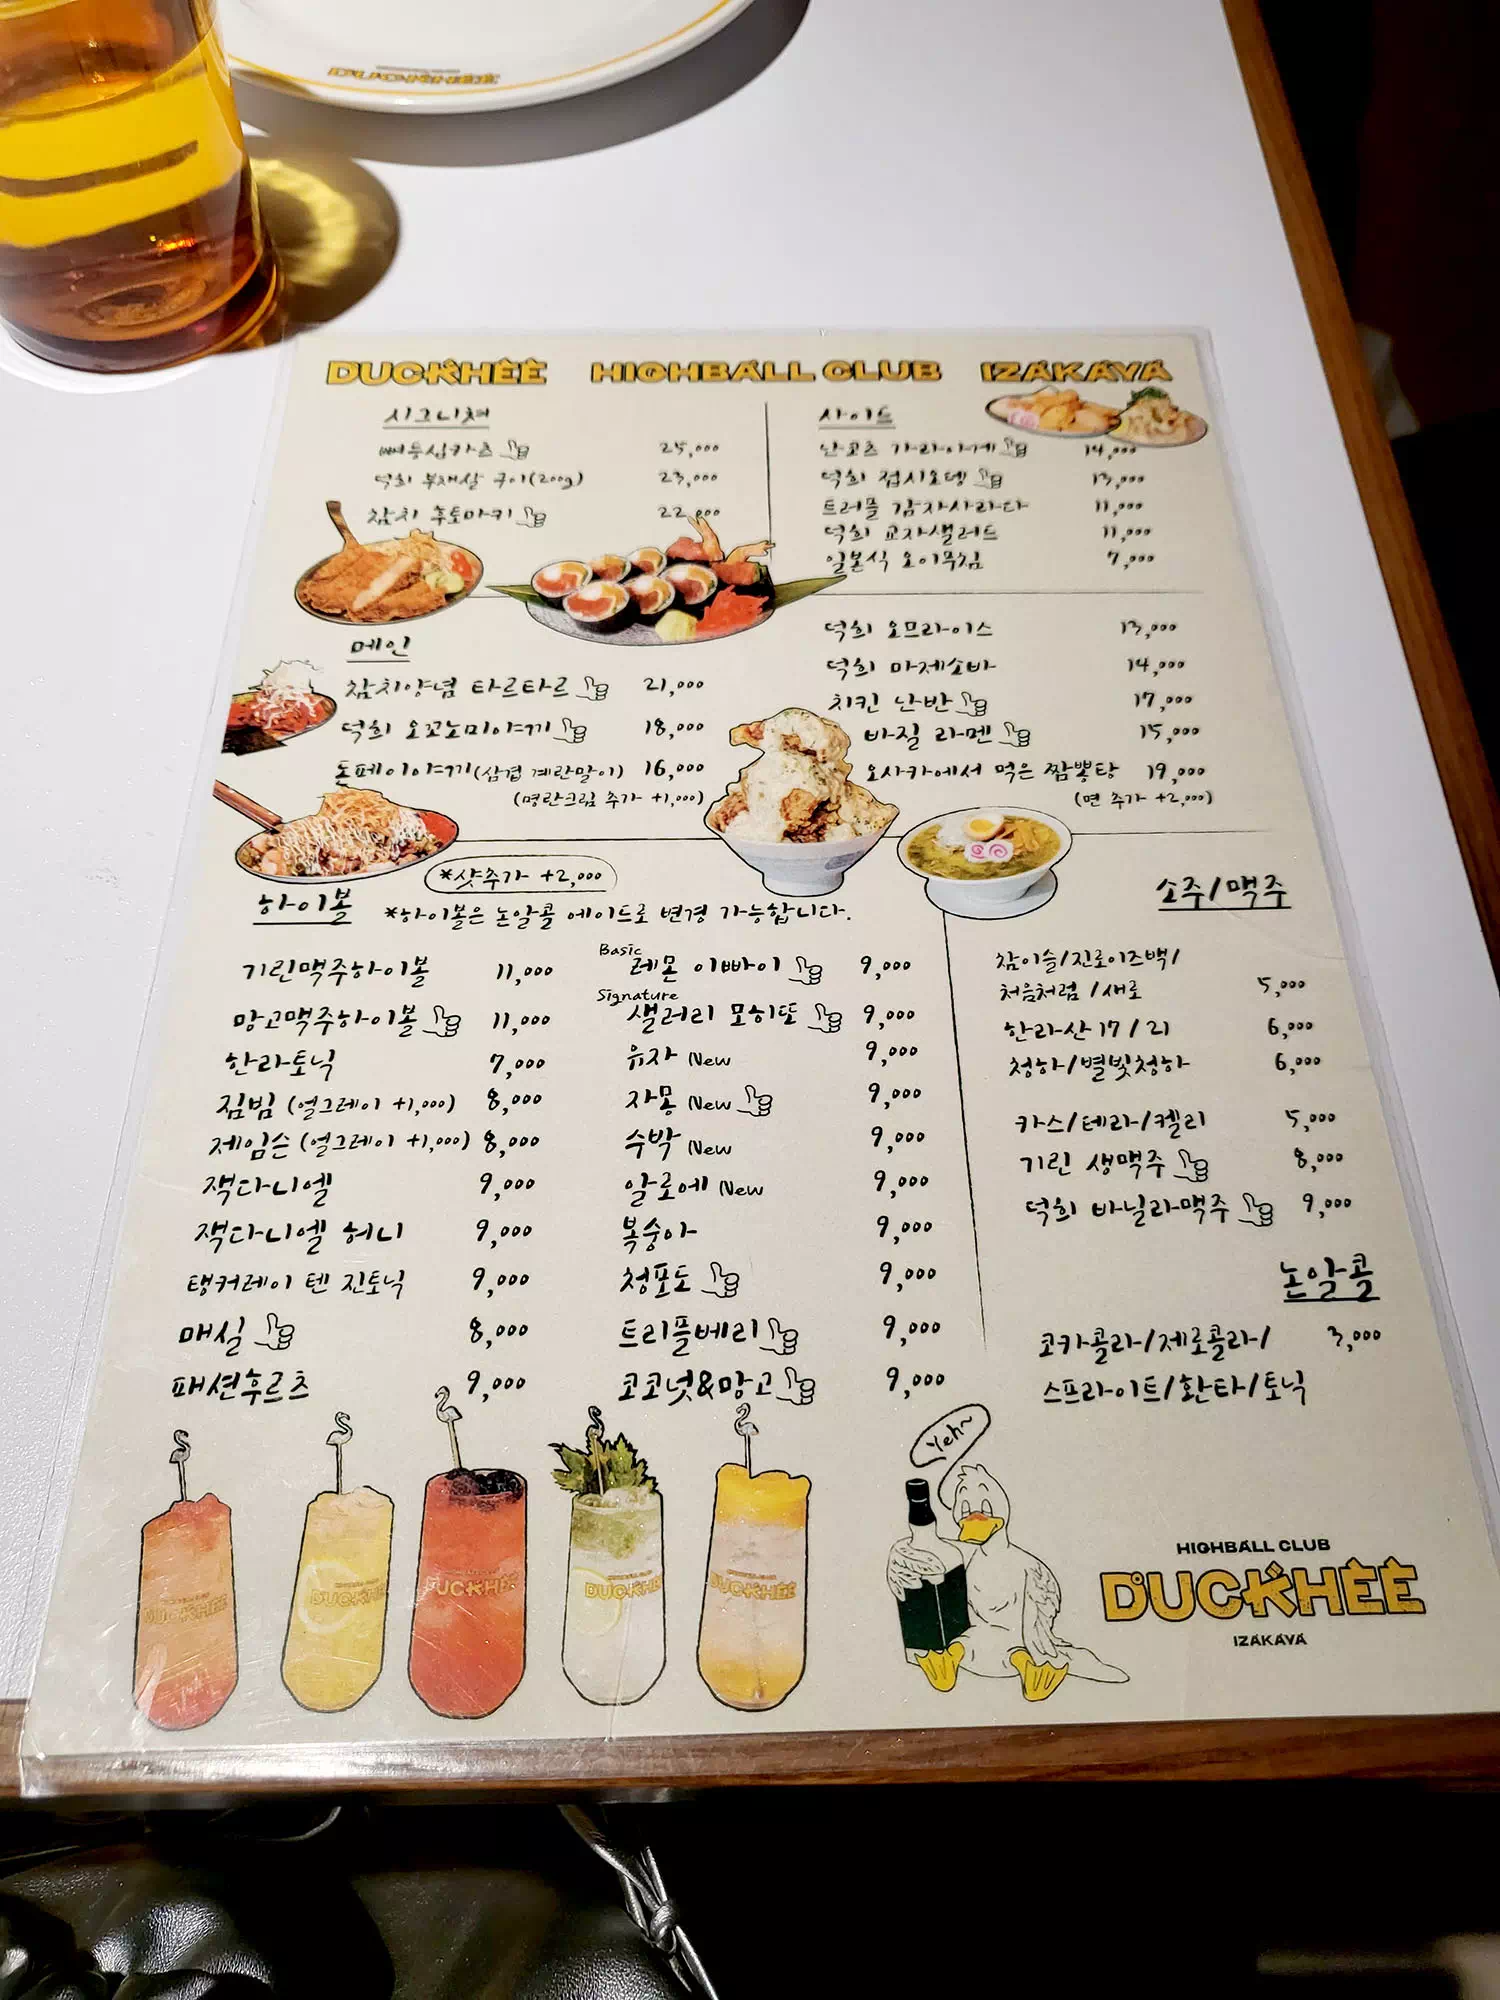 DUCKHEE
DUCKHEE HIGHBALL CLUB IZAKAYA
시그니쳐
뼈등심카츠 25,000
덕희 부채살 구이(200g) 23,000
참치 후토마키 22,000
사이드
난코츠 가라아게 14,000
덕희 접시오뎅 13,000
트러플 감자사라다 11,000
덕희 교자샐러드 11,000
일본식 오이무침 7,000
메인
참치양념 타르타르 21,000
덕희 오꼬노미야끼 18,000
돈페이야끼(삼겹 계란말이) 16,000
(명란크림 추가 +1,000)
덕희 오므라이스 13,000
덕희 마제소바 14,000
치킨 난반 17,000
바질 라멘 15,000
오사카에서 먹은 짬뽕탕 19,000
(면 추가 +2,000)
*샷추가 +2,000
하이볼 *하이볼은 논알콜 에이드로 변경 가능합니다.
기린맥주하이볼 11,000
망고맥주하이볼 11,000
한라토닉 7,000
짐빔 (얼그레이 +1,000) 8,000
제임슨 (얼그레이 +1,000) 8,000
잭다니엘 9,000
잭다니엘 허니 9,000
탱커레이 텐 진토닉 9,000
매실 8,000
패션후르츠 9,000
Basic
레몬 이빠이 9,000
Signature
샐러리 모히또 9,000
유자 New 9,000
자몽 New 9,000
수박 New 9,000
알로에 New 9,000
복숭아 9,000
청포도 9,000
트리플베리 9,000
코코넛&망고 9,000
소주/맥주
참이슬/진로이즈백/
처음처럼/새로 5,000
한라산 17/21 6,000
청하/별빛청하 6,000
카스/테라/켈리 5,000
기린 생맥주 8,000
덕희 바닐라맥주 9,000
논알콜
코카콜라/제로콜라/ 3,000
스프라이트/환타/토닉
Yeh~
DUCKHEE
DUCKHEE
DUCKHEE
DUCKHEE
DUCKHEE
HIGHBALL CLUB
DUCKHEE
IZAKAYA